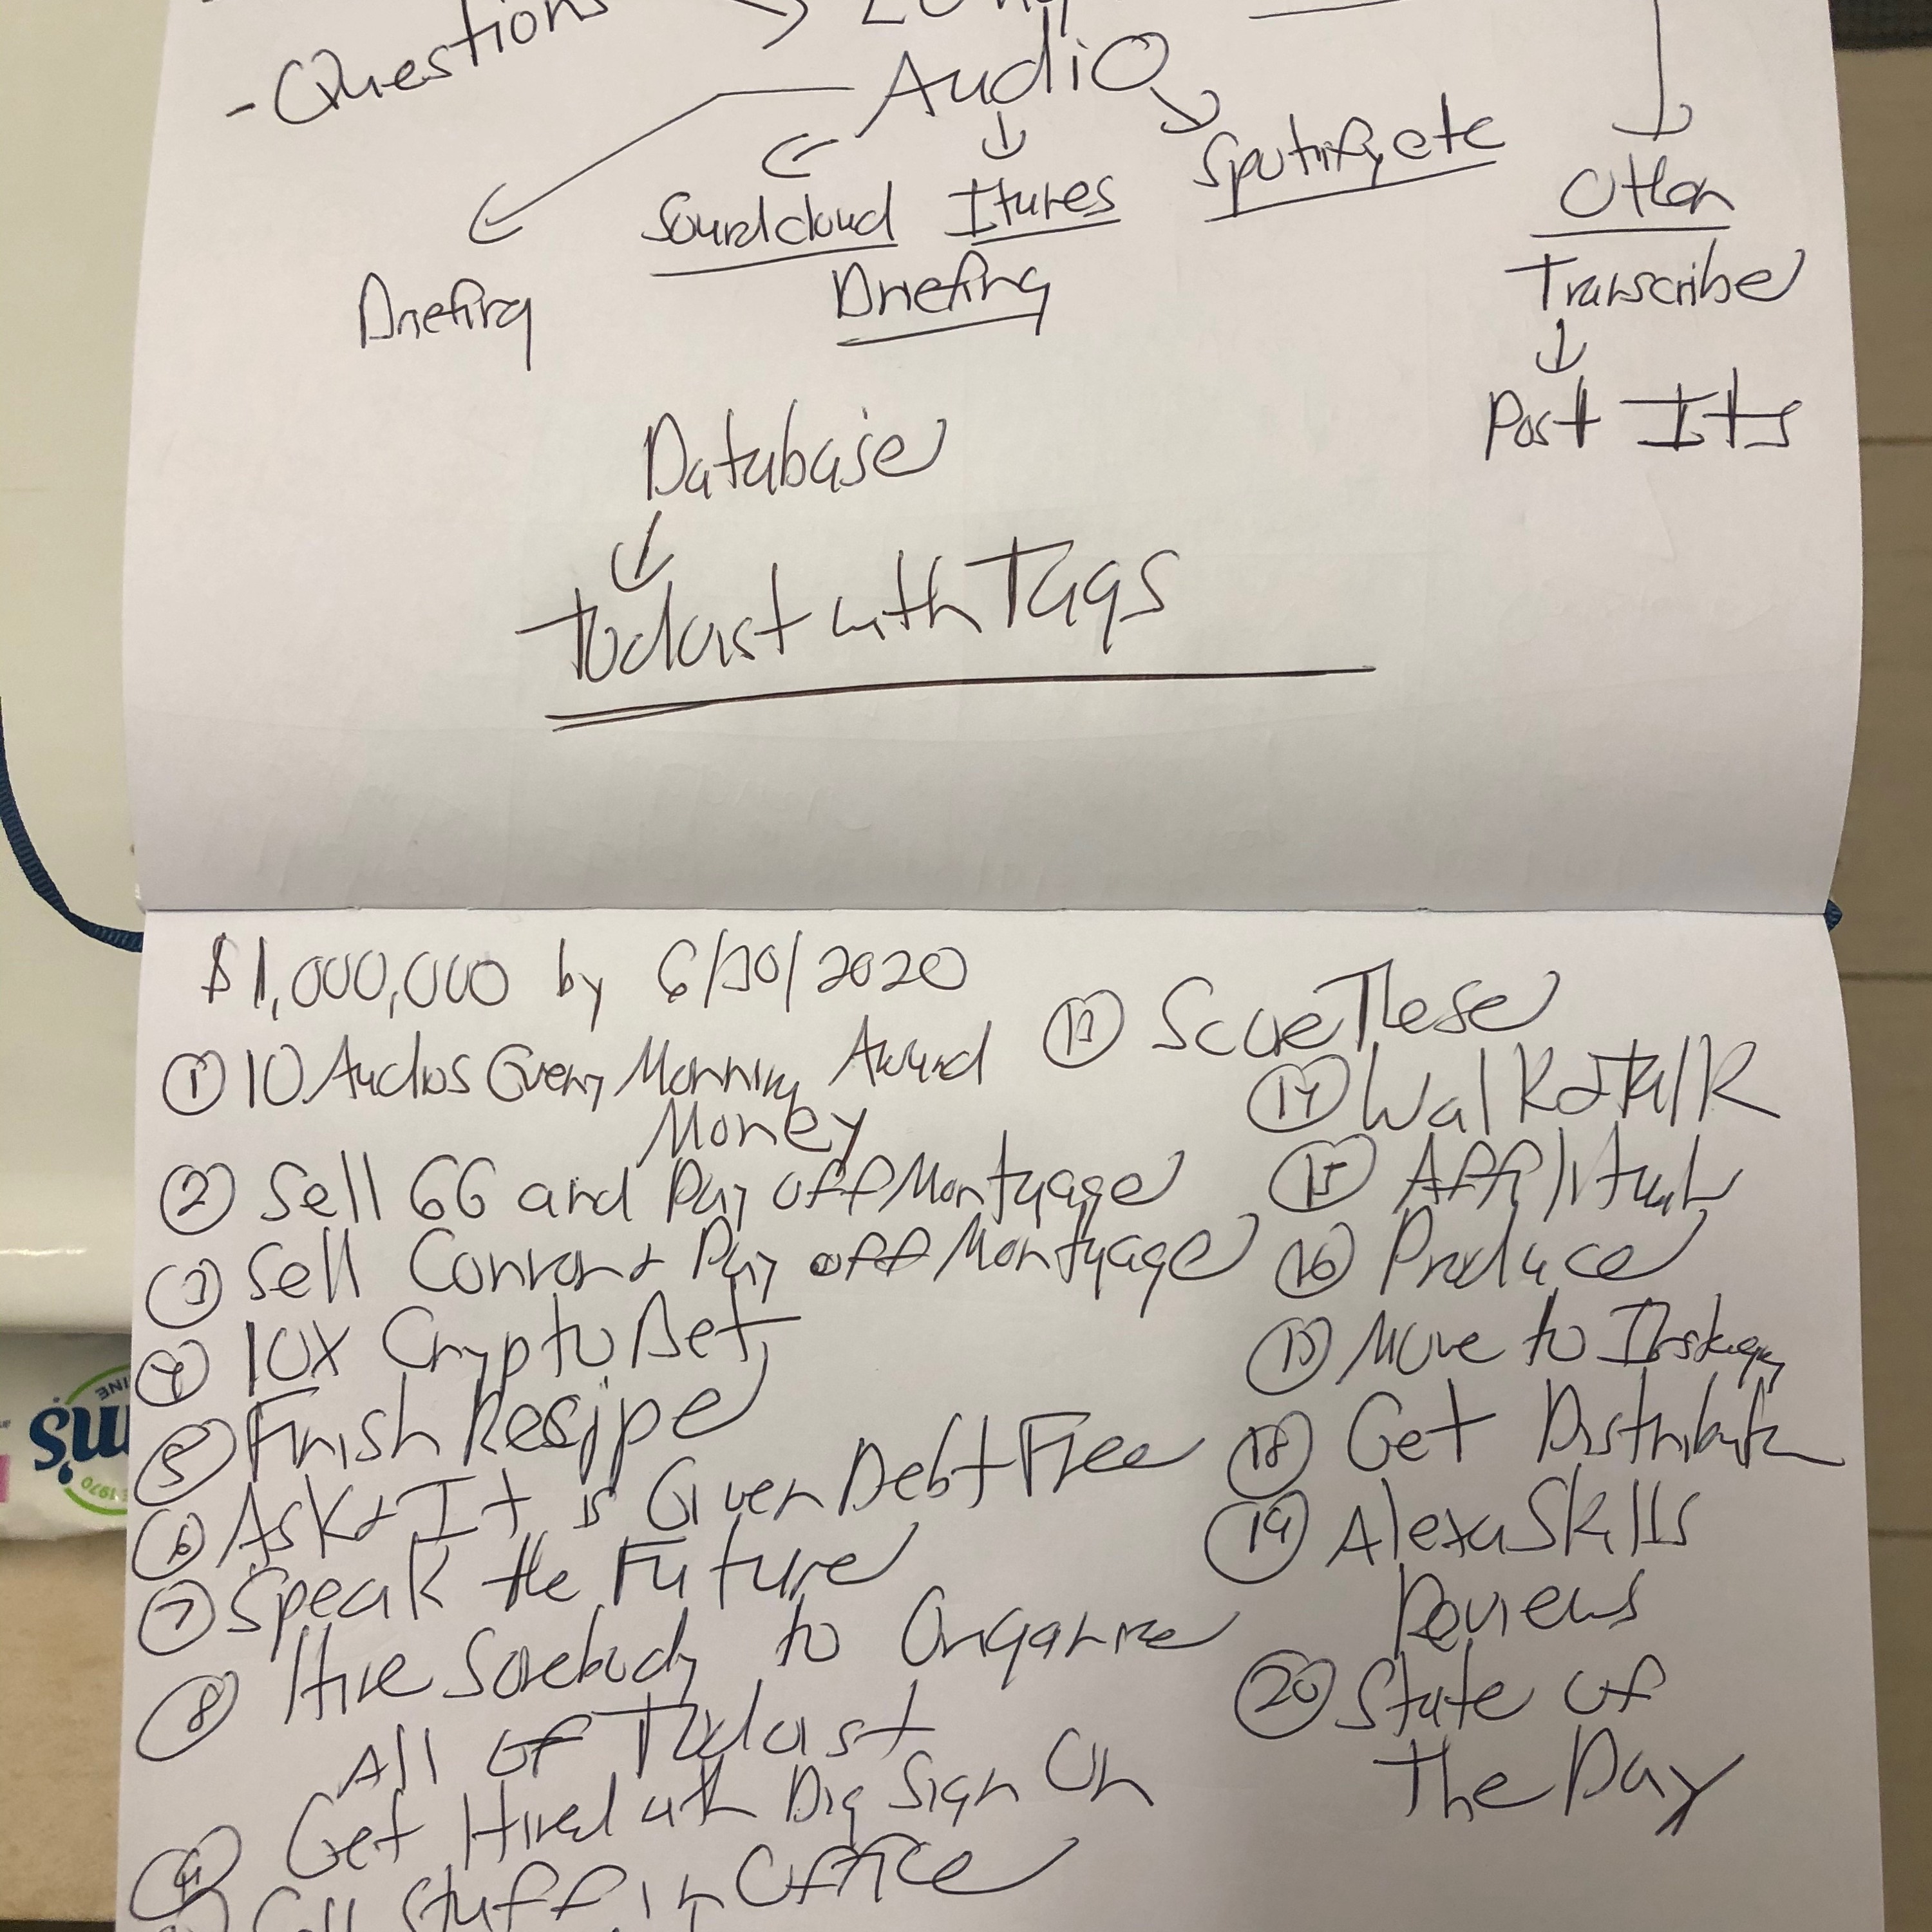 - Questions
Audio
Soundcloud Itunes Spotify, etc
Briefing Briefing
Otter
Transcribe
Post Its
Database
Todoist with Tags
$1,000,000 by 6/30/2020
① 10 Audios Every Morning Around
Money
② Sell GG and Pay off Mortgage
③ Sell Conror & Pay off Mortgage
④ 10X Crypto Bet
⑤ Finish Resipe
⑥ Ask & It is Given Debt Free
⑦ Speak the Future
⑧ Hire Somebody to Organize
All of Todoist
⑨ Get Hired with Big Sign On
Sell Stuff in Office
⑬ Score These
⑭ Walk & Talk
⑮
⑯ Produce
Move to
⑱ Get
⑲ Alexa Skills
Reviews
⑳ State of
The Day